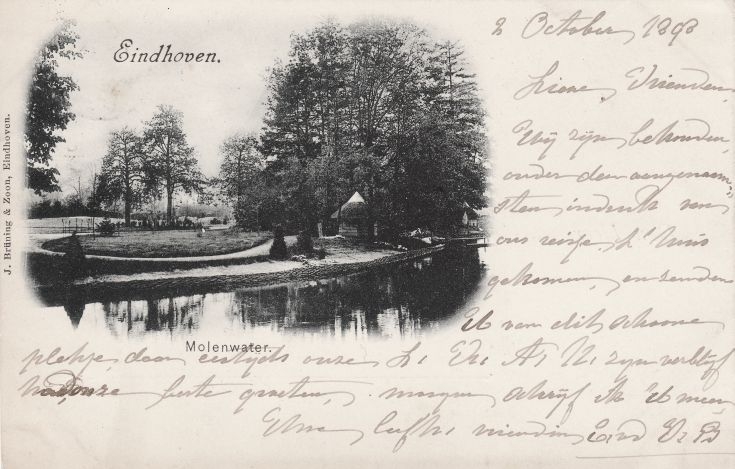 Eindhoven.
2 October 1898
Lieve Vrienden,
Wij zijn behouden,
onder den aangenaam-
sten indruk van
ons reisje, t'huis
gekomen, en zenden
U van dit schoone
plekje, daar eertijds onze
zijn verblijf
had, onze beste groeten, morgen schrijf ik U meer,
Uwe liefh. vriendin
Molenwater.
J. Brüning & Zoon, Eindhoven.